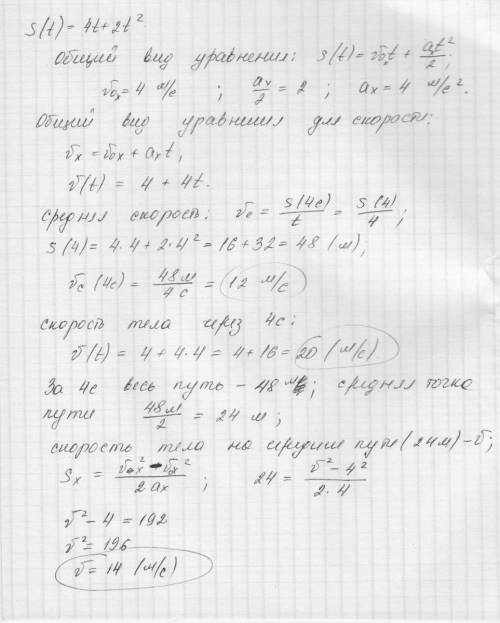 S(t) = 4t + 2t².
Общий вид уравнения: S(t) = v₀ₓt + aₓt²/2;
v₀ₓ = 4 м/с ; aₓ/2 = 2 ; aₓ = 4 м/с².
Общий вид уравнения для скорости:
vₓ = v₀ₓ + aₓt,
v(t) = 4 + 4t.
Средняя скорость: v_c = S(4с)/t = S(4)/4;
S(4) = 4·4 + 2·4² = 16 + 32 = 48 (м);
v_c (4с) = 48м/4с = 12 м/с
скорость тела через 4с:
v(t) = 4 + 4·4 = 4 + 16 = 20 (м/с)
За 4с весь путь – 48 м; средняя точка
пути 48м/2 = 24 м;
скорость тела на середине пути (24м) – v;
Sₓ = (vₓ² - v₀ₓ²)/2aₓ ; 24 = (v² - 4²)/2·4
v² - 4 = 192
v² = 196
v = 14 (м/с)